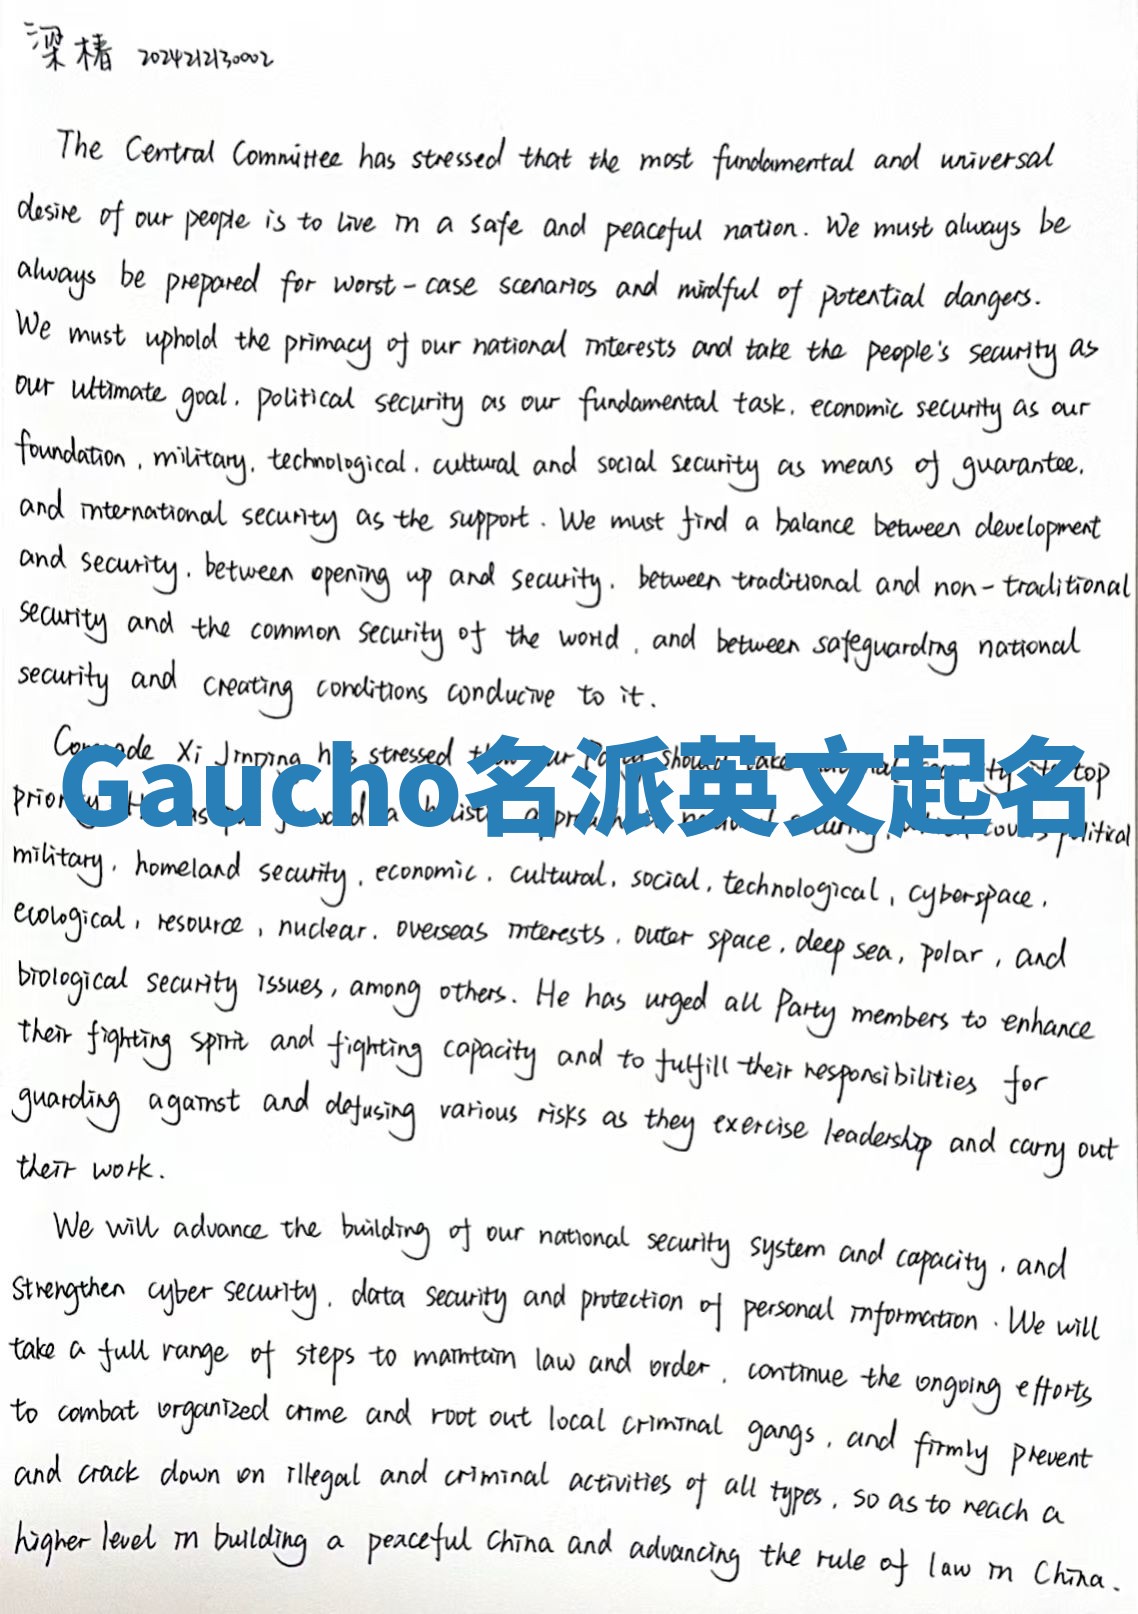 梁椿 2024212130002
The Central Committee has stressed that the most fundamental and universal
desire of our people is to live in a safe and peaceful nation. We must always be
always be prepared for worst-case scenarios and mindful of potential dangers.
We must uphold the primacy of our national interests and take the people's security as
our ultimate goal, political security as our fundamental task, economic security as our
foundation, military, technological, cultural and social security as means of guarantee,
and international security as the support. We must find a balance between development
and security, between opening up and security, between traditional and non-traditional
security and the common security of the world, and between safeguarding national
security and creating conditions conducive to it.
Xi Jinping has stressed top
Gaucho名派英文起名
political
military, homeland security, economic, cultural, social, technological, cyberspace,
ecological, resource, nuclear, overseas interests, outer space, deep sea, polar, and
biological security issues, among others. He has urged all Party members to enhance
their fighting spirit and fighting capacity and to fulfill their responsibilities for
guarding against and defusing various risks as they exercise leadership and carry out
their work.
We will advance the building of our national security system and capacity, and
strengthen cyber security, data security and protection of personal information. We will
take a full range of steps to maintain law and order, continue the ongoing efforts
to combat organized crime and root out local criminal gangs, and firmly prevent
and crack down on illegal and criminal activities of all types, so as to reach a
higher level in building a peaceful China and advancing the rule of law in China.